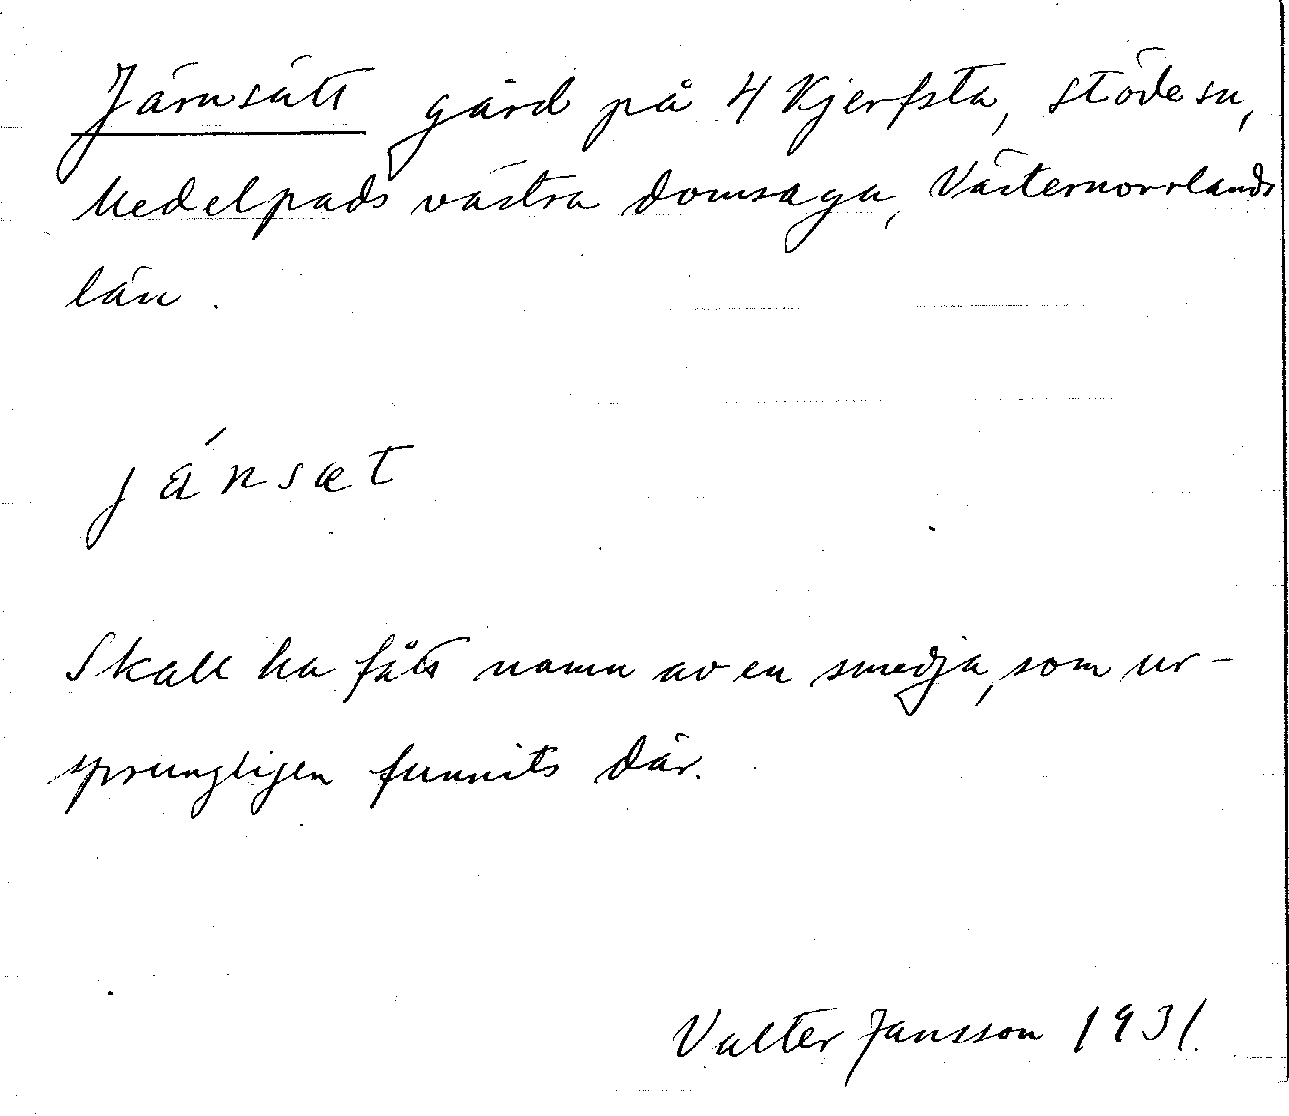 Järnsätt gård på 4 Kjerfsta, Stöde sn,
Medelpads västra domsaga, Västernorrlands
län.
jánsæt
Skall ha fått namn av en smedja, som ur-
sprungligen funnits där.
Valter Jansson 1931.